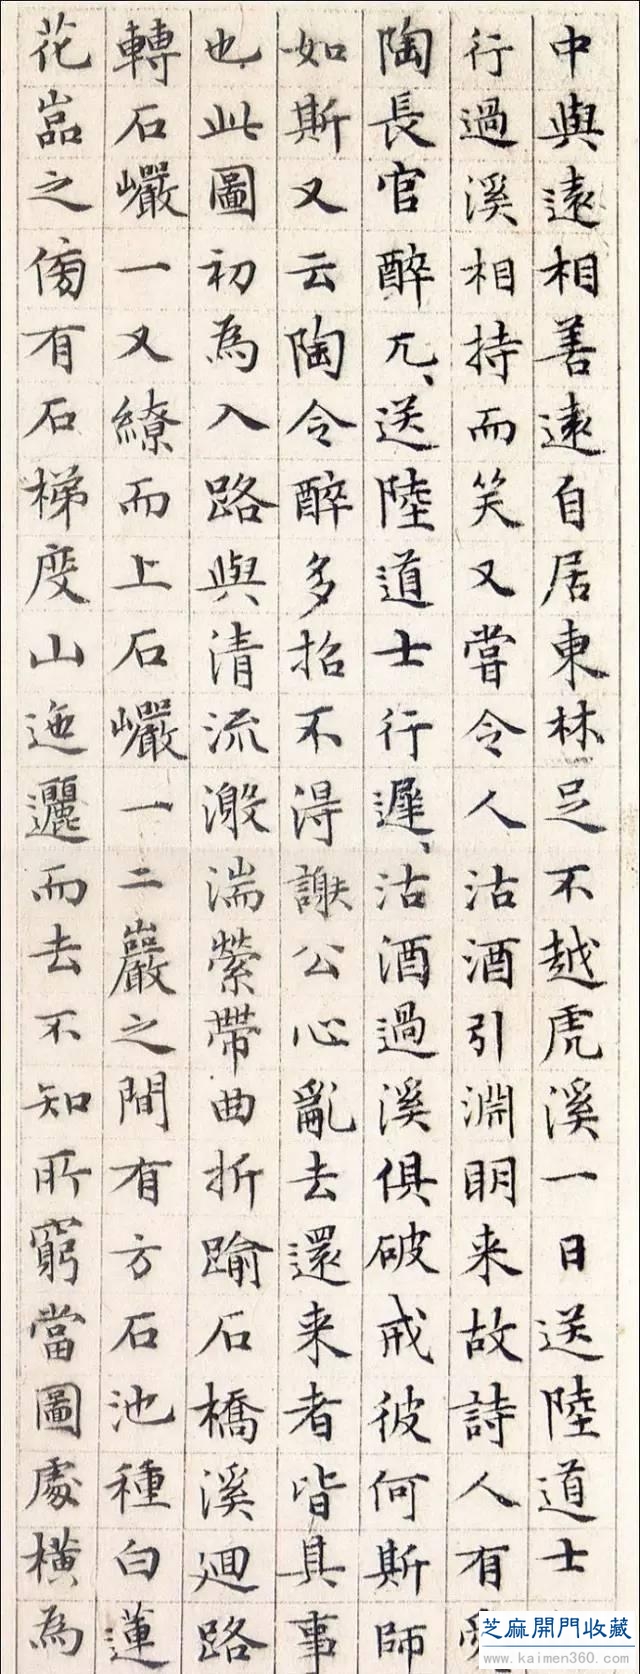 中與遠相善遠自居東林足不越虎溪一日送陸道士
行過溪相持而笑又嘗令人沽酒引淵明来故詩人有
陶長官醉兀、送陸道士行遲、沽酒過溪俱破戒彼何斯師
如斯又云陶令醉多招不得謝公心亂去還来者皆具事
也此圖初為入路與清流激湍縈帶曲折踰石橋溪迴路
轉石巖一又繚而上石巖一二巖之間有方石池種白蓮
花嵓之傍有石梯度山迤邐而去不知所窮當圖處横為
芝麻開門收藏
www.kaimen360.com